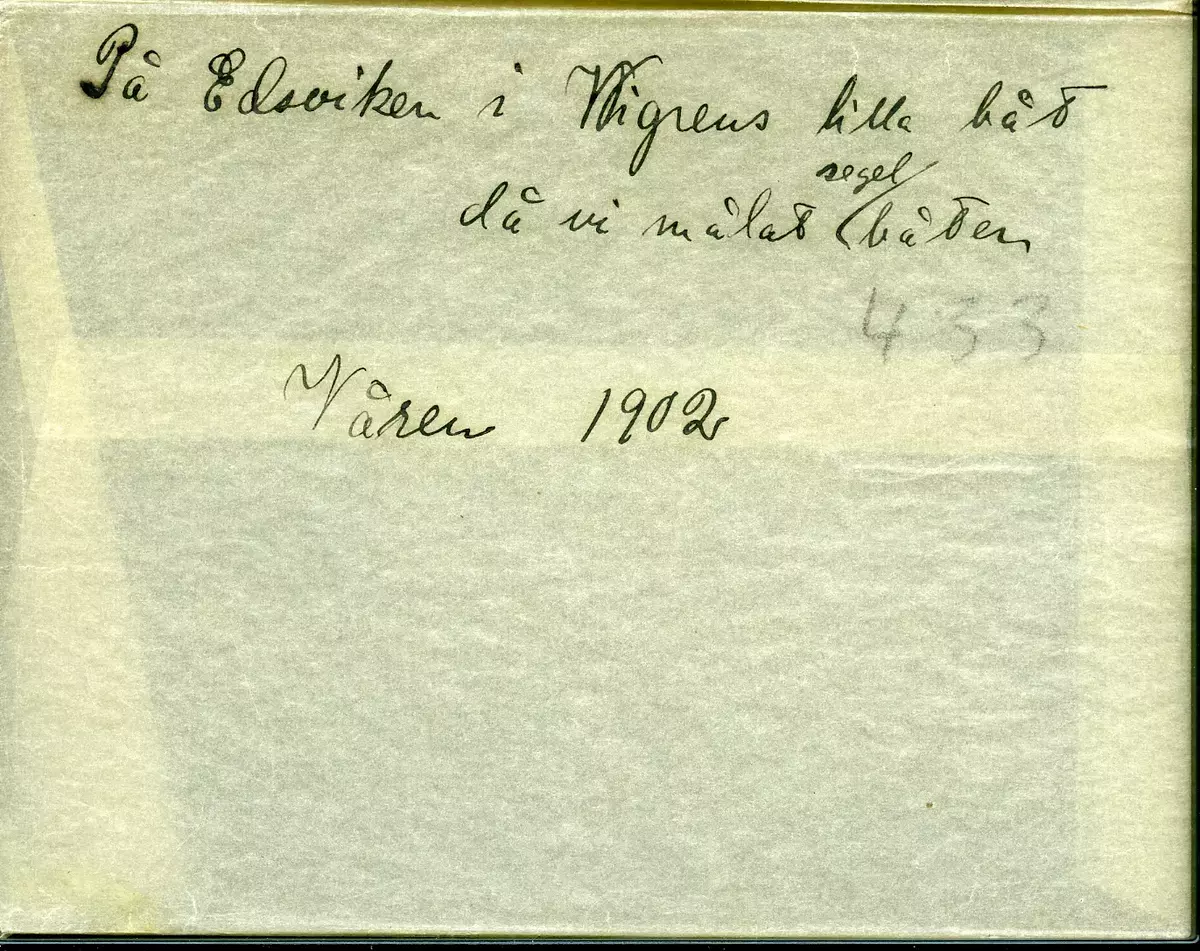 På Edsviken i Wigrens lilla båt
då vi målat segelbåten
433
Våren 1902